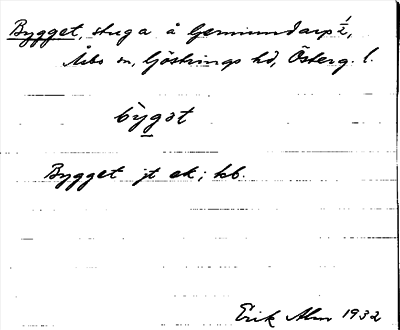 Bygget, stuga å Gemiundarp 1/2,
Åsbo sn, Göstrings hd, Österg. l.
bỳgat
Bygget jt ek; kb.
Erik Alm 1932